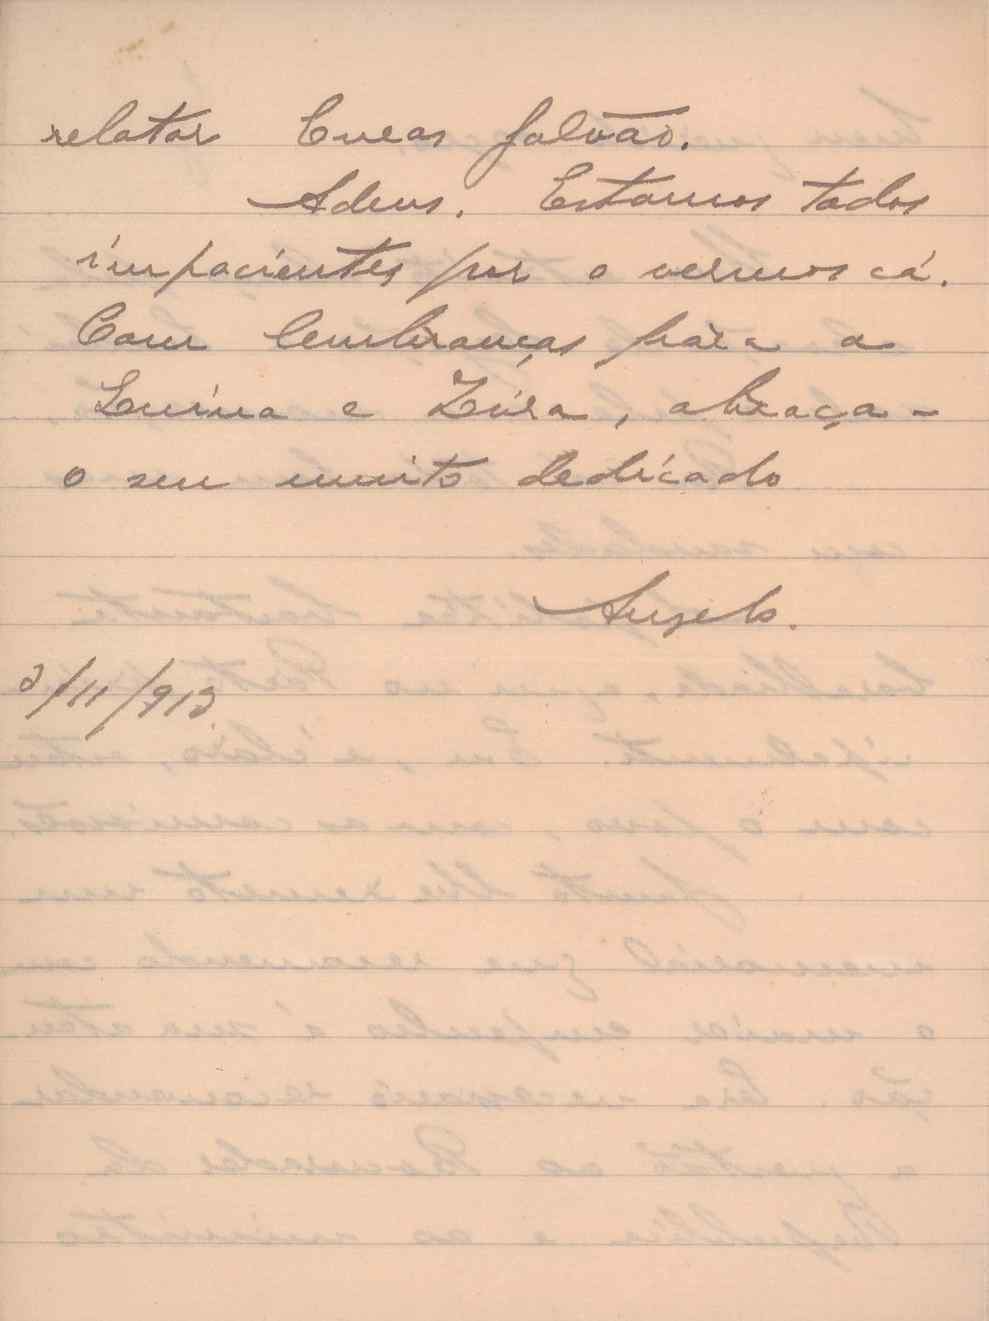 relator Eneas Galvão.
Adeus. Estamos todos
impacientes por o vermos cá.
Com lembranças para a
e Zaira, abraça-
o seu muito dedicado
Angelo.
2/11/913